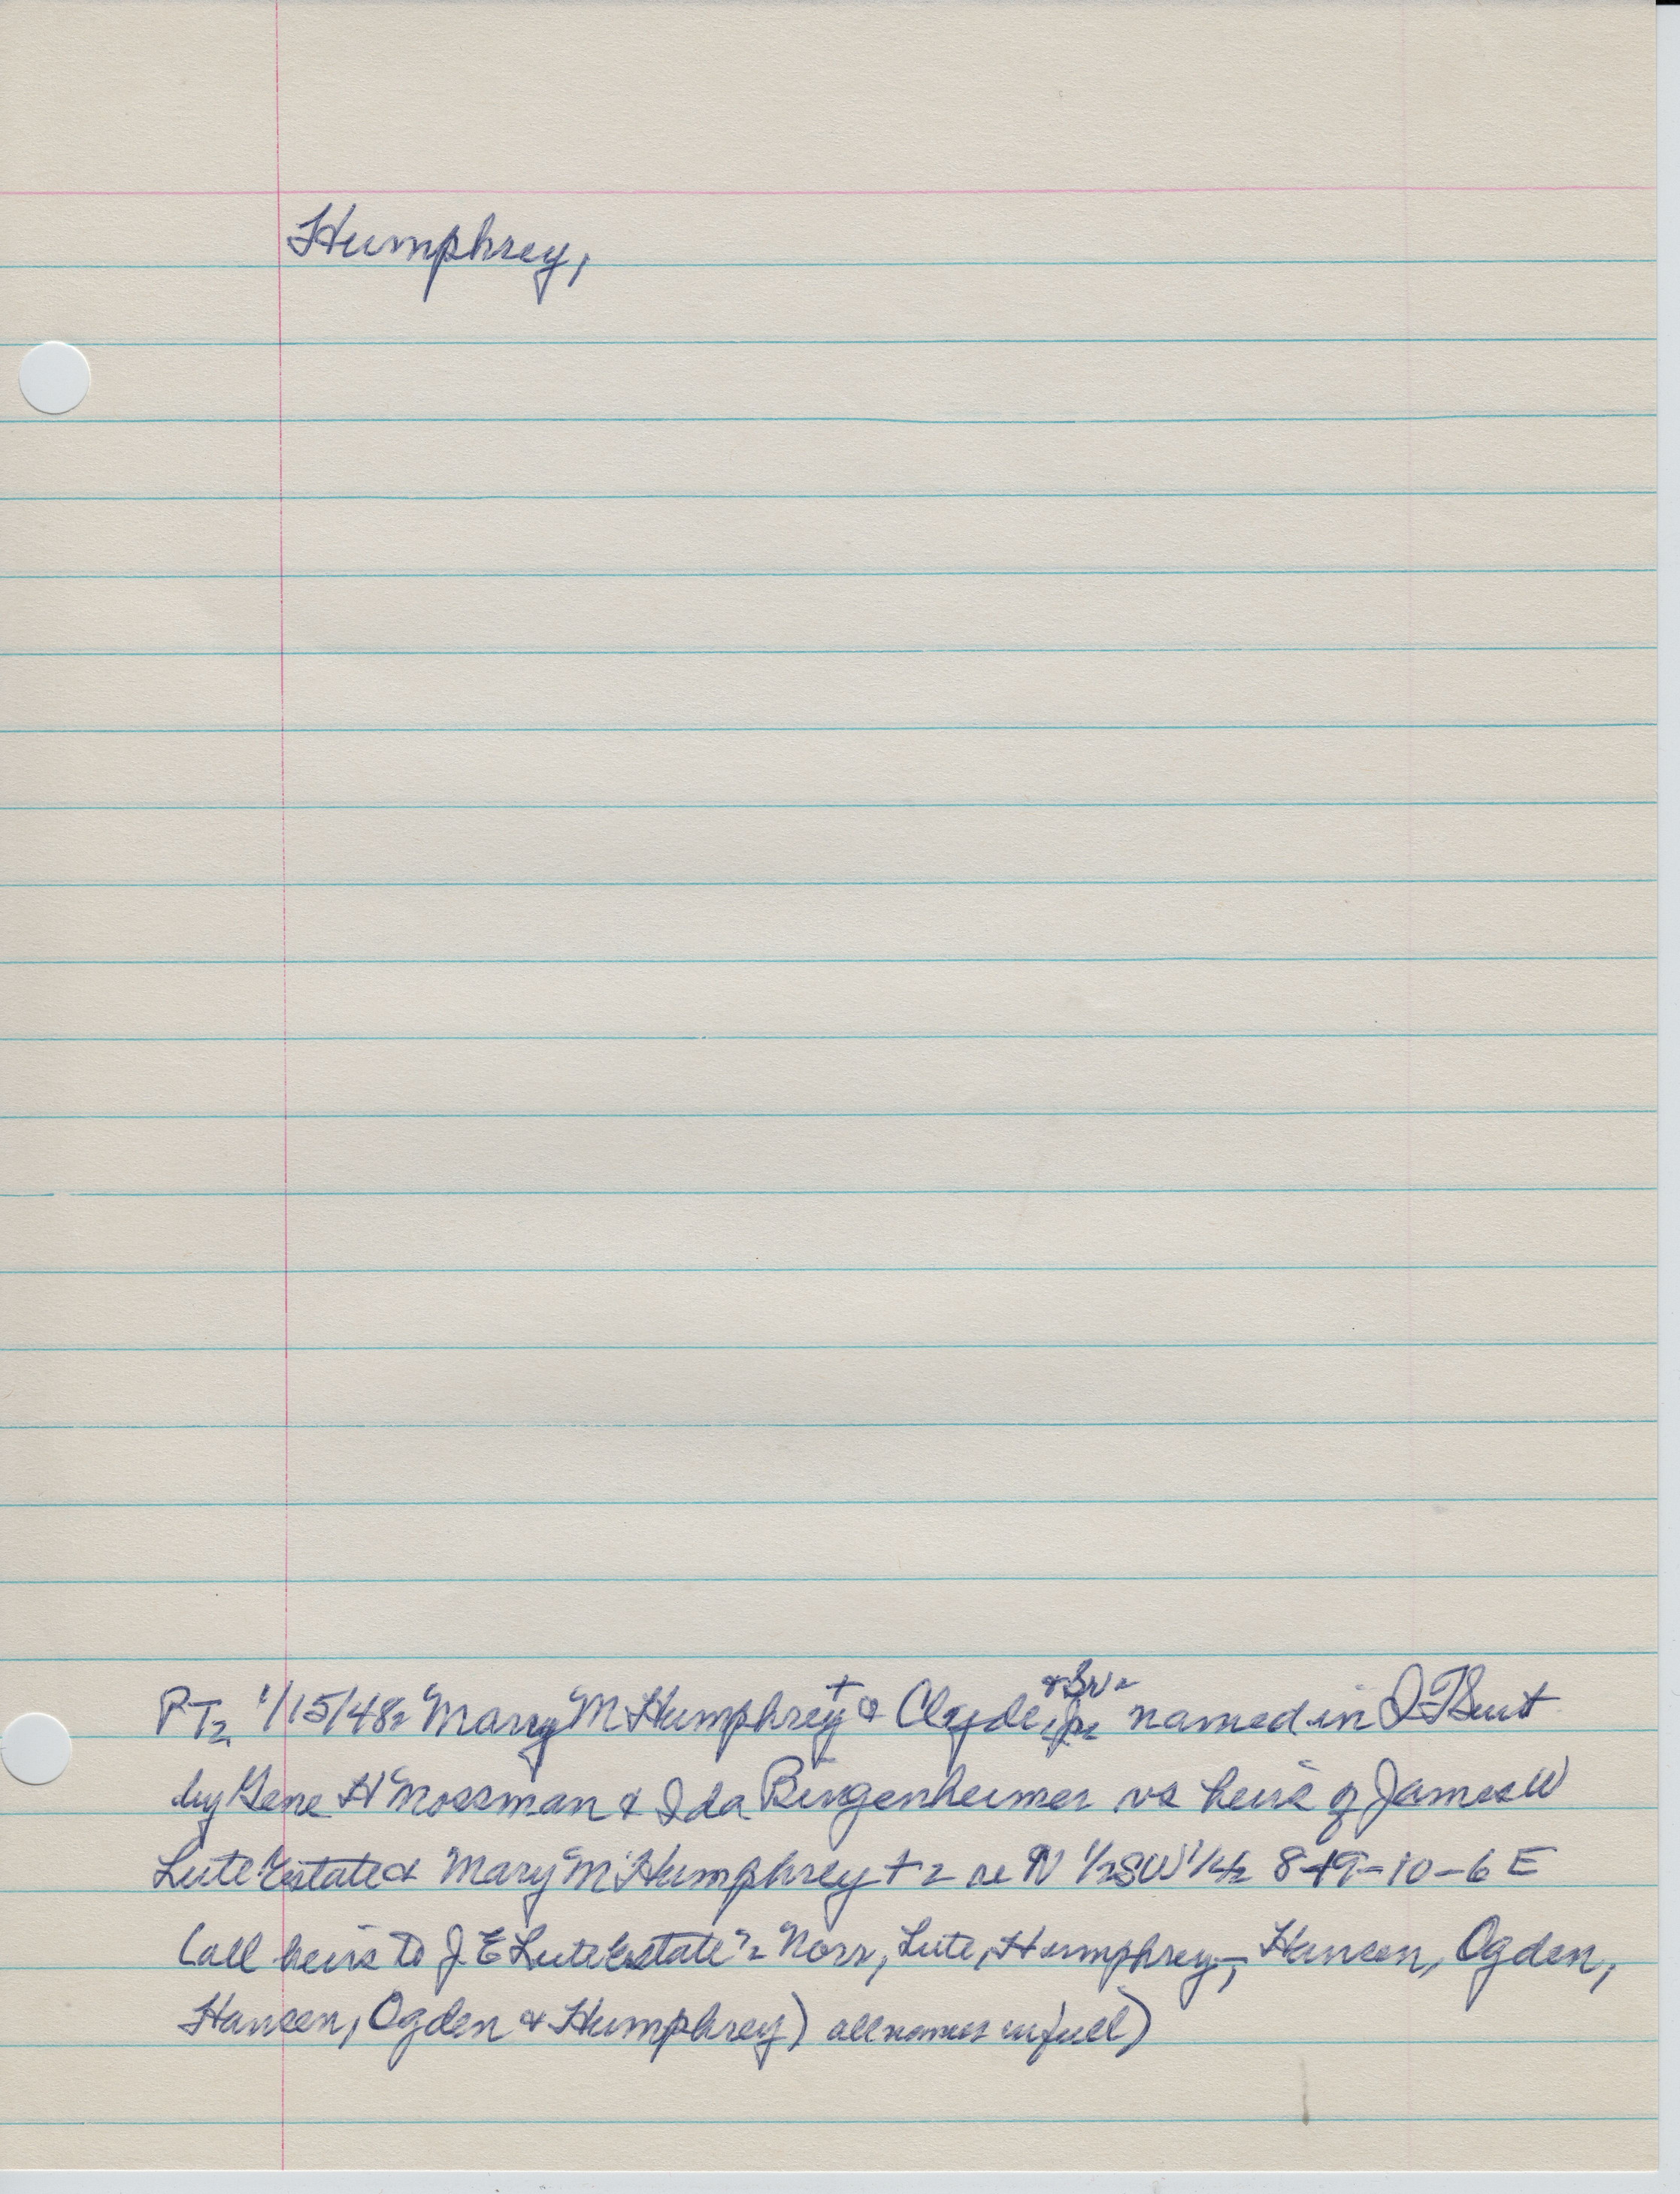 Humphrey,
& Sr.
PT. 1/15/48. Mary M Humphrey + & Clyde, Jr. named in QT Suit
by Gene H Mossman & Ida Bingenheimer vs heirs of James W
Lute Estate & Mary M Humphrey + re N 1/2 SW 1/4 8-19-10-6 E
(all heirs to J E Lute Estate. Norr, Lute, Humphrey, Hansen, Ogden,
Hansen, Ogden & Humphrey) all names in full)